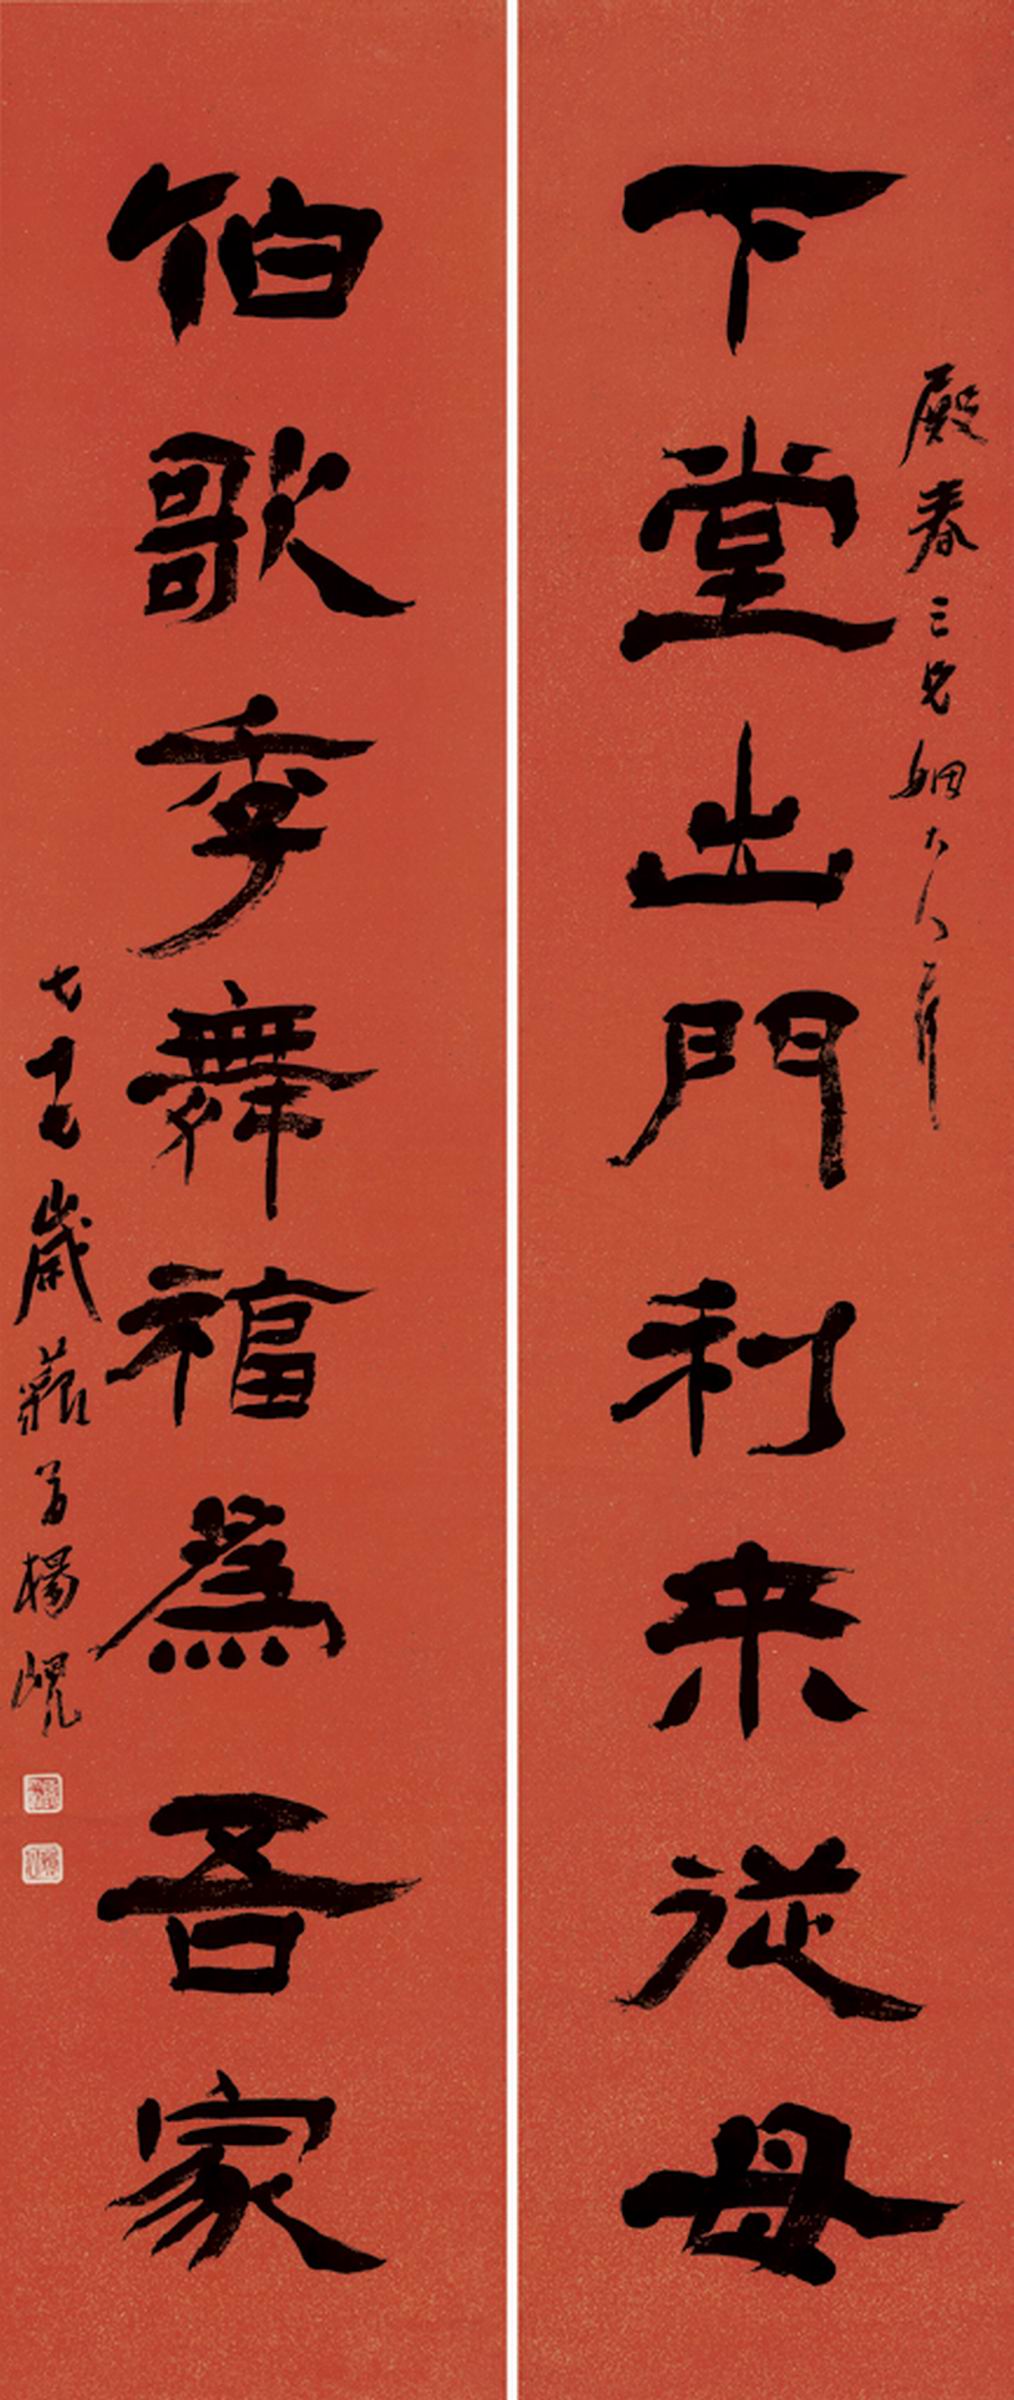 殿春三兄姻大人屬
下堂出門利来從母
伯歌季舞福為吾家
七十七歲藐翁楊峴